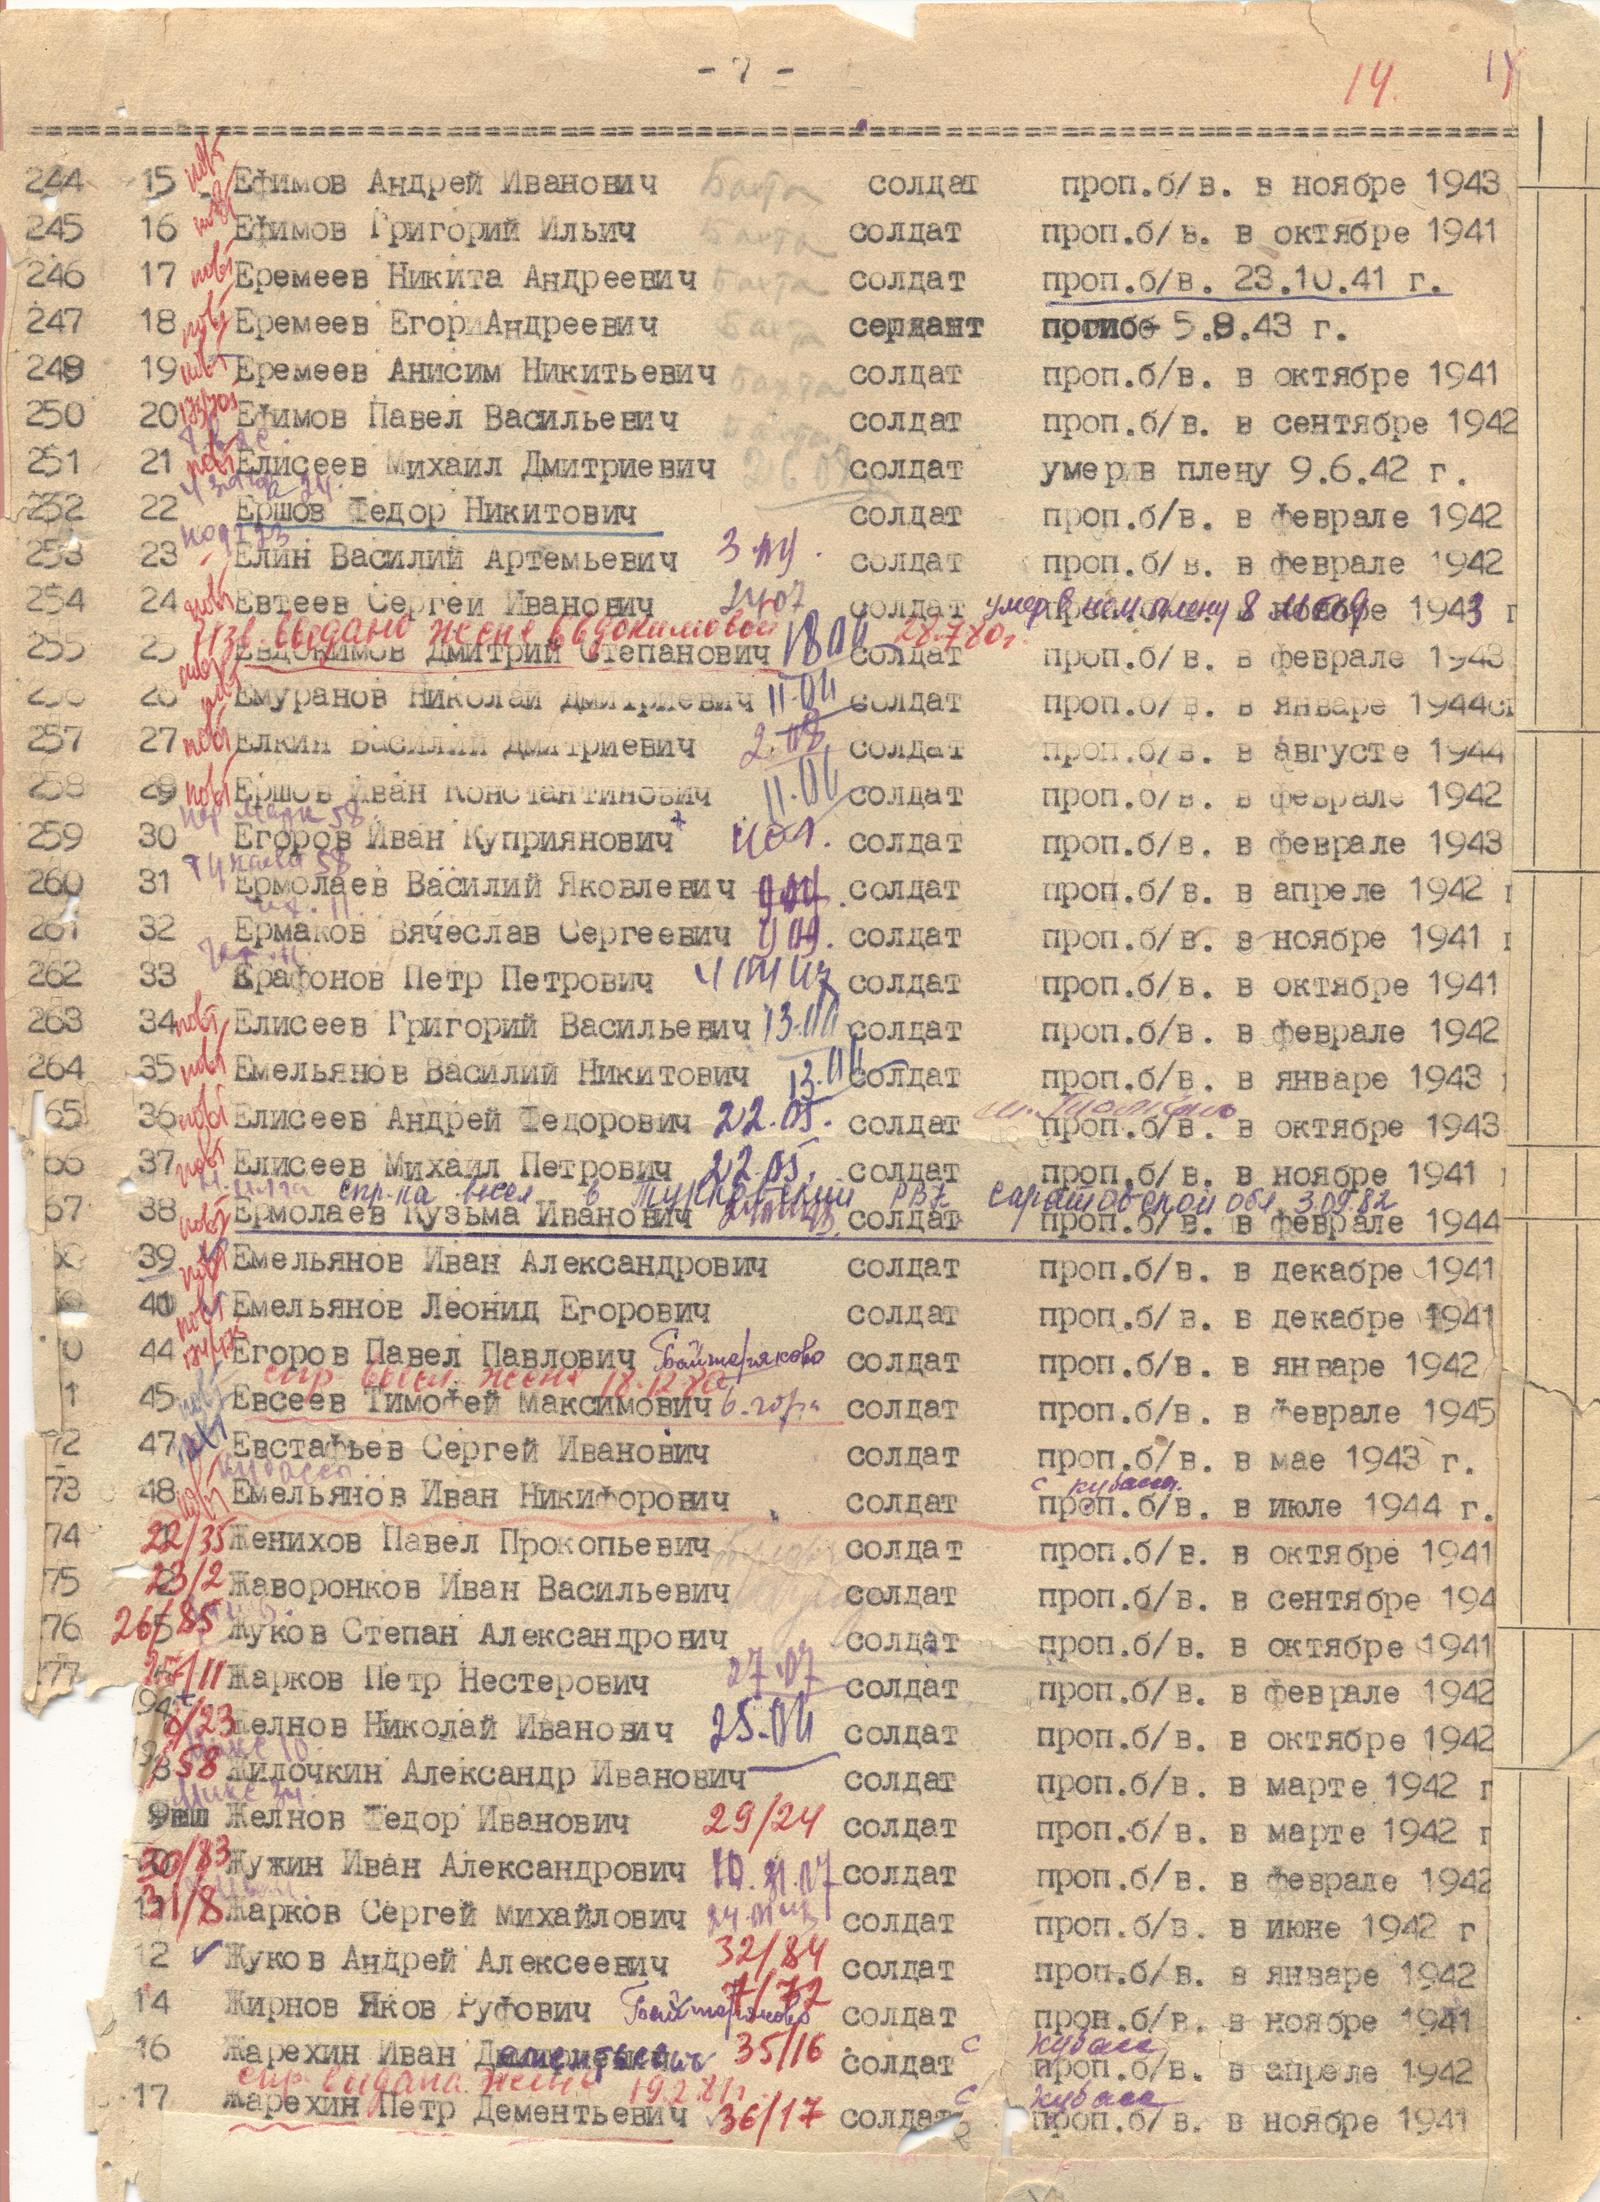 - 7 -
14.
244 15 Ефимов Андрей Иванович Бахта солдат проп.б/в. в ноябре 1943
245 16 Ефимов Григорий Ильич Бахта солдат проп.б/в. в октябре 1941
246 17 Еремеев Никита Андреевич Бахта солдат проп.б/в. 23.10.41 г.
247 18 Еремеев Егор Андреевич Бахта сержант погиб 5.8.43 г.
249 19 Еремеев Анисим Никитьевич Бахта солдат проп.б/в. в октябре 1941
250 20 Ефимов Павел Васильевич Бахта солдат проп.б/в. в сентябре 1942
251 21 Елисеев Михаил Дмитриевич солдат умер в плену 9.6.42 г.
252 22 Ершов Федор Никитович солдат проп.б/в. в феврале 1942
253 23 Елин Василий Артемьевич солдат проп.б/в. в феврале 1942
254 24 Евтеев Сергей Иванович 2407 солдат умер в нем. плену 8 1943 г
Изв. выдано жене Евдокимовой 28.7.80г.
255 25 Евдокимов Дмитрий Степанович солдат проп.б/в. в феврале 1943
256 26 Емуранов Николай Дмитриевич 11.04 солдат проп.б/в. в январе 1944
257 27 Елкин Василий Дмитриевич 2.08 солдат проп.б/в. в августе 1944
258 29 Ершов Иван Константинович 11.04 солдат проп.б/в. в феврале 1942
259 30 Егоров Иван Куприянович солдат проп.б/в. в феврале 1943
260 31 Ермолаев Василий Яковлевич солдат проп.б/в. в апреле 1942 г
261 32 Ермаков Вячеслав Сергеевич солдат проп.б/в. в ноябре 1941 г
262 33 Ерафонов Петр Петрович солдат проп.б/в. в октябре 1941
263 34 Елисеев Григорий Васильевич солдат проп.б/в. в феврале 1942
264 35 Емельянов Василий Никитович 13.04 солдат проп.б/в. в январе 1943
65 36 Елисеев Андрей Федорович 22.05. солдат проп.б/в. в октябре 1943
66 37 Елисеев Михаил Петрович 22.05. солдат проп.б/в. в ноябре 1941
спр-ка высл в Турковский РВК Саратовской обл 3.09.82
67 38 Ермолаев Кузьма Иванович солдат проп.б/в. в феврале 1944
39 Емельянов Иван Александрович солдат проп.б/в. в декабре 1941
40 Емельянов Леонид Егорович солдат проп.б/в. в декабре 1941
0 44 Егоров Павел Павлович Байтеряково солдат проп.б/в. в январе 1942
спр. высл. жене 18.12.80
1 45 Евсеев Тимофей Максимович в.гора солдат проп.б/в. в феврале 1945
72 47 Евстафьев Сергей Иванович солдат проп.б/в. в мае 1943 г.
с кубасс.
73 48 Емельянов Иван Никифорович солдат проп.б/в. в июле 1944 г.
74 22/35 Женихов Павел Прокопьевич солдат проп.б/в. в октябре 1941
75 23/2 Жаворонков Иван Васильевич солдат проп.б/в. в сентябре 194
76 26/85 Жуков Степан Александрович солдат проп.б/в. в октябре 1941
77 /11 Жарков Петр Нестерович 27.07 солдат проп.б/в. в феврале 1942
/23 Желнов Николай Иванович 25.04 солдат проп.б/в. в октябре 1942
/58 Жилочкин Александр Иванович солдат проп.б/в. в марте 1942 г
9 Желнов Федор Иванович 29/24 солдат проп.б/в. в марте 1942 г
30/83 Жужин Иван Александрович солдат проп.б/в. в феврале 1942
31/8 Жарков Сергей михайлович солдат проп.б/в. в июне 1942 г
12 Жуков Андрей Алексеевич 32/84 солдат проп.б/в. в январе 1942
14 Жирнов Яков Руфович Байтеряково 7/72 солдат проп.б/в. в ноябре 1941
с кубасс
16 Жарехин Иван Дементьевич 35/16 солдат проп.б/в. в апреле 1942
спр. выдана жене 19.2.81г.
с кубасс
17 Жарехин Петр Дементьевич 36/17 солдат проп.б/в. в ноябре 1941